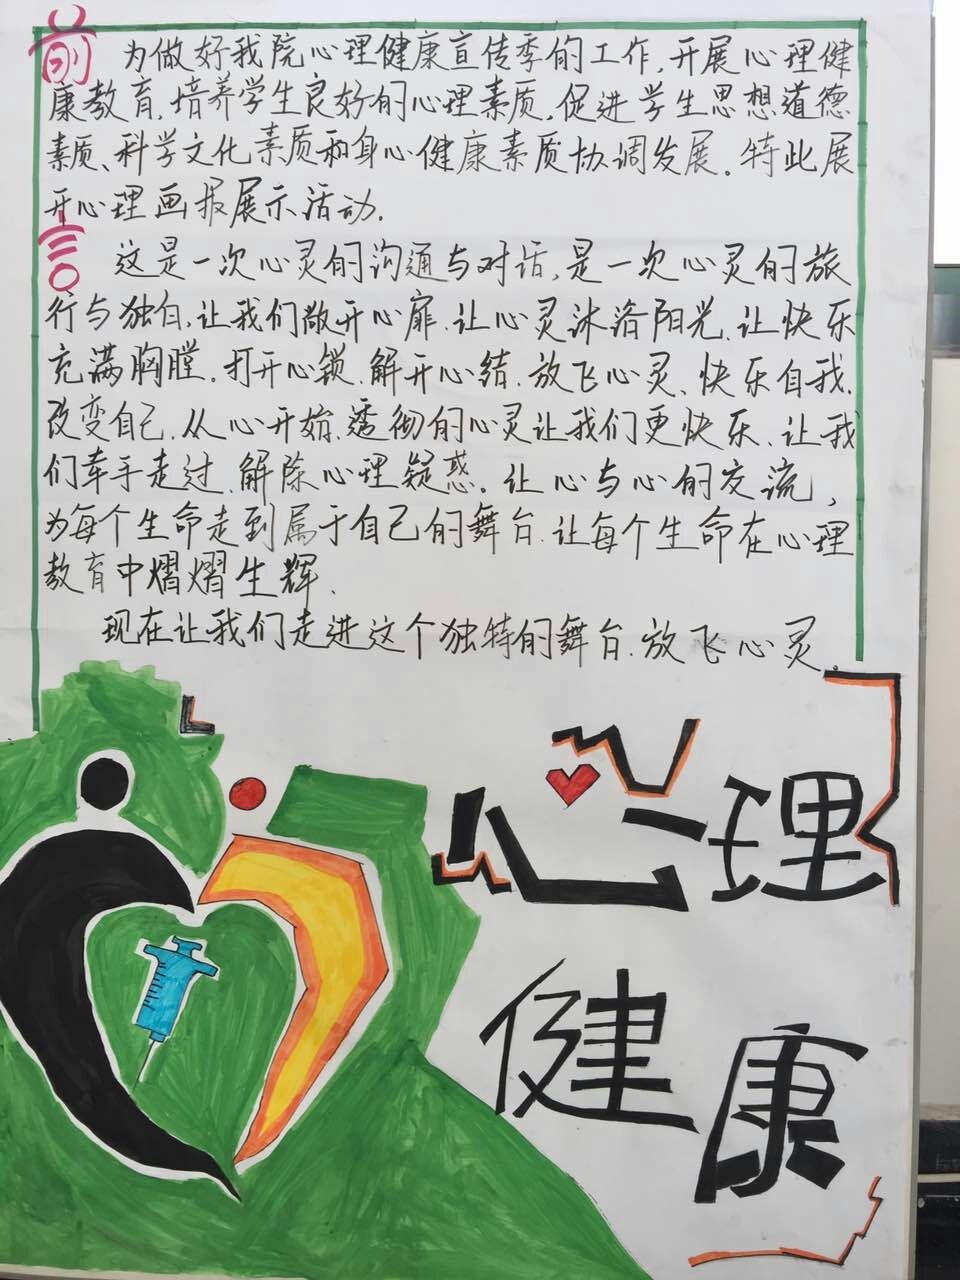 前言
为做好我院心理健康宣传季的工作,开展心理健
康教育,培养学生良好的心理素质,促进学生思想道德
素质、科学文化素质和身心健康素质协调发展.特此展
开心理画报展示活动.
这是一次心灵的沟通与对话,是一次心灵的旅
行与独白,让我们敞开心扉.让心灵沐浴阳光.让快乐
充满胸膛.打开心锁.解开心结.放飞心灵、快乐自我.
改变自己.从心开始.透彻的心灵让我们更快乐、让我
们牵手走过.解除心理疑惑.让心与心的交流,
为每个生命走到属于自己的舞台.让每个生命在心理
教育中熠熠生辉.
现在让我们走进这个独特的舞台.放飞心灵.
心理
健康